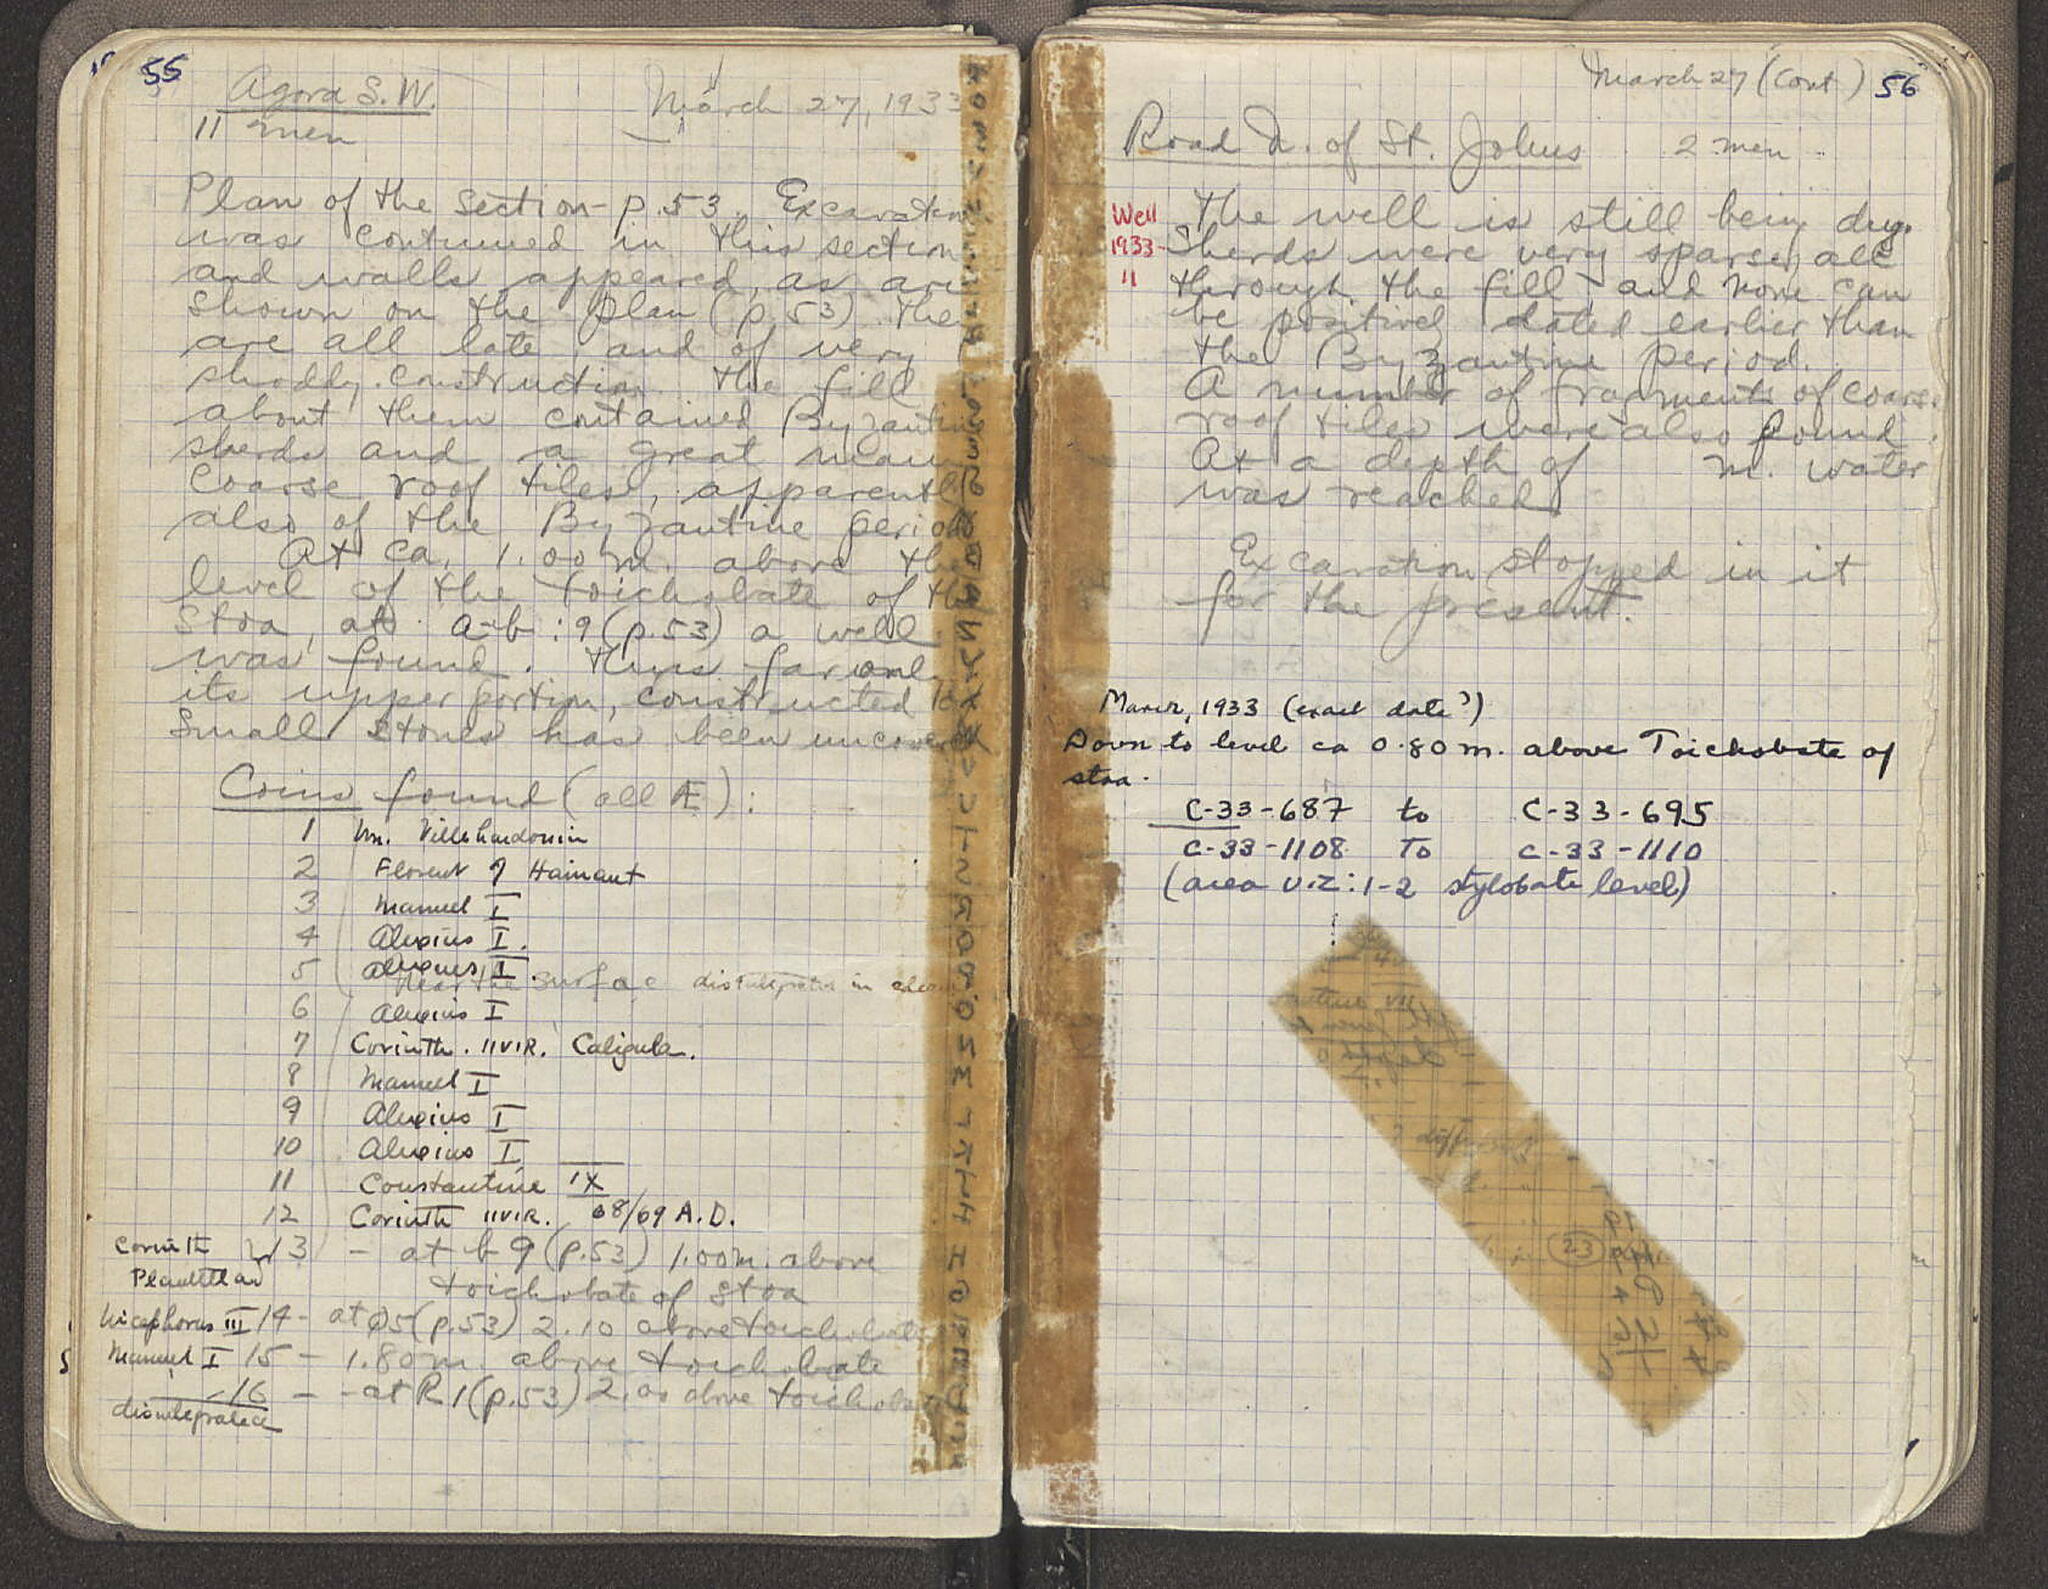 55
Agora S. W. March 27, 1933
11 men
Plan of the section - p. 53. Excavation
was continued in this section
and walls appeared, as are
shown on the plan (p. 53). The
are all late and of very
shoddy construction. The fill
about them contained Byzantine
sherds and a great many
coarse roof tiles, apparently
also of the Byzantine period
At ca. 1.00 m. above the
level of the toichobate of the
Stoa, at a-b : 9 (p. 53) a well
was found. Thus far only
its upper portion, constructed
small stones has been uncovered
Coins found (all Æ) :
1 Wm. Villehardouin
2 Florent of Hainaut
3 Manuel I
4 Alexius I.
5 Alexius I.
Near the surface disintegrated in
6 Alexius I
7 Corinth. IIVIR. Caligula.
8 Manuel I
9 Alexius I
10 Alexius I
11 Constantine IX
12 Corinth IIVIR. 68/69 A.D.
Corinth 13 - at b 9 (p. 53) 1.00 m. above
Plautilla toichobate of Stoa
Nicephorus III 14 - at Ø5 (p. 53) 2.10 above toichobate
Manuel I 15 - 1.80 m. above toichobate
16 - - at R 1 (p. 53) 2.00 above toichobate
disintegrated
March 27 (Cont) 56
Road N. of St. Johns 2 men
Well
1933-
11
The well is still being dug.
Sherds were very sparse, all
through the fill, and none can
be positively dated earlier than
the Byzantine period.
A number of fragments of coarse
roof tiles were also found.
At a depth of m. water
was reached
Excavation stopped in it
for the present.
March, 1933 (exact date?)
Down to level ca 0.80 m. above Toichobate of
stoa.
C-33-687 to C-33-695
C-33-1108 To C-33-1110
(area U-Z : 1-2 stylobate level)